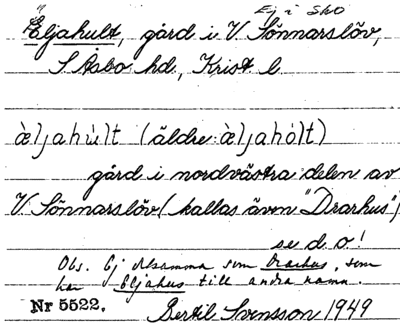 Ej i Sko
Eljahult, gård i V. Sönnarslöv,
S Åsbo hd., Krist l.
æ̀ljahúlt (äldre: æ̀ljahólt)
gård i nordvästra delen av
V. Sönnarslöv (kallas även "Drarhus")
se d o!
Obs. Ej detsamma som Drarhus, som
har Eljahus till andra namn.
Nr 5522. Bertil Svensson 1949